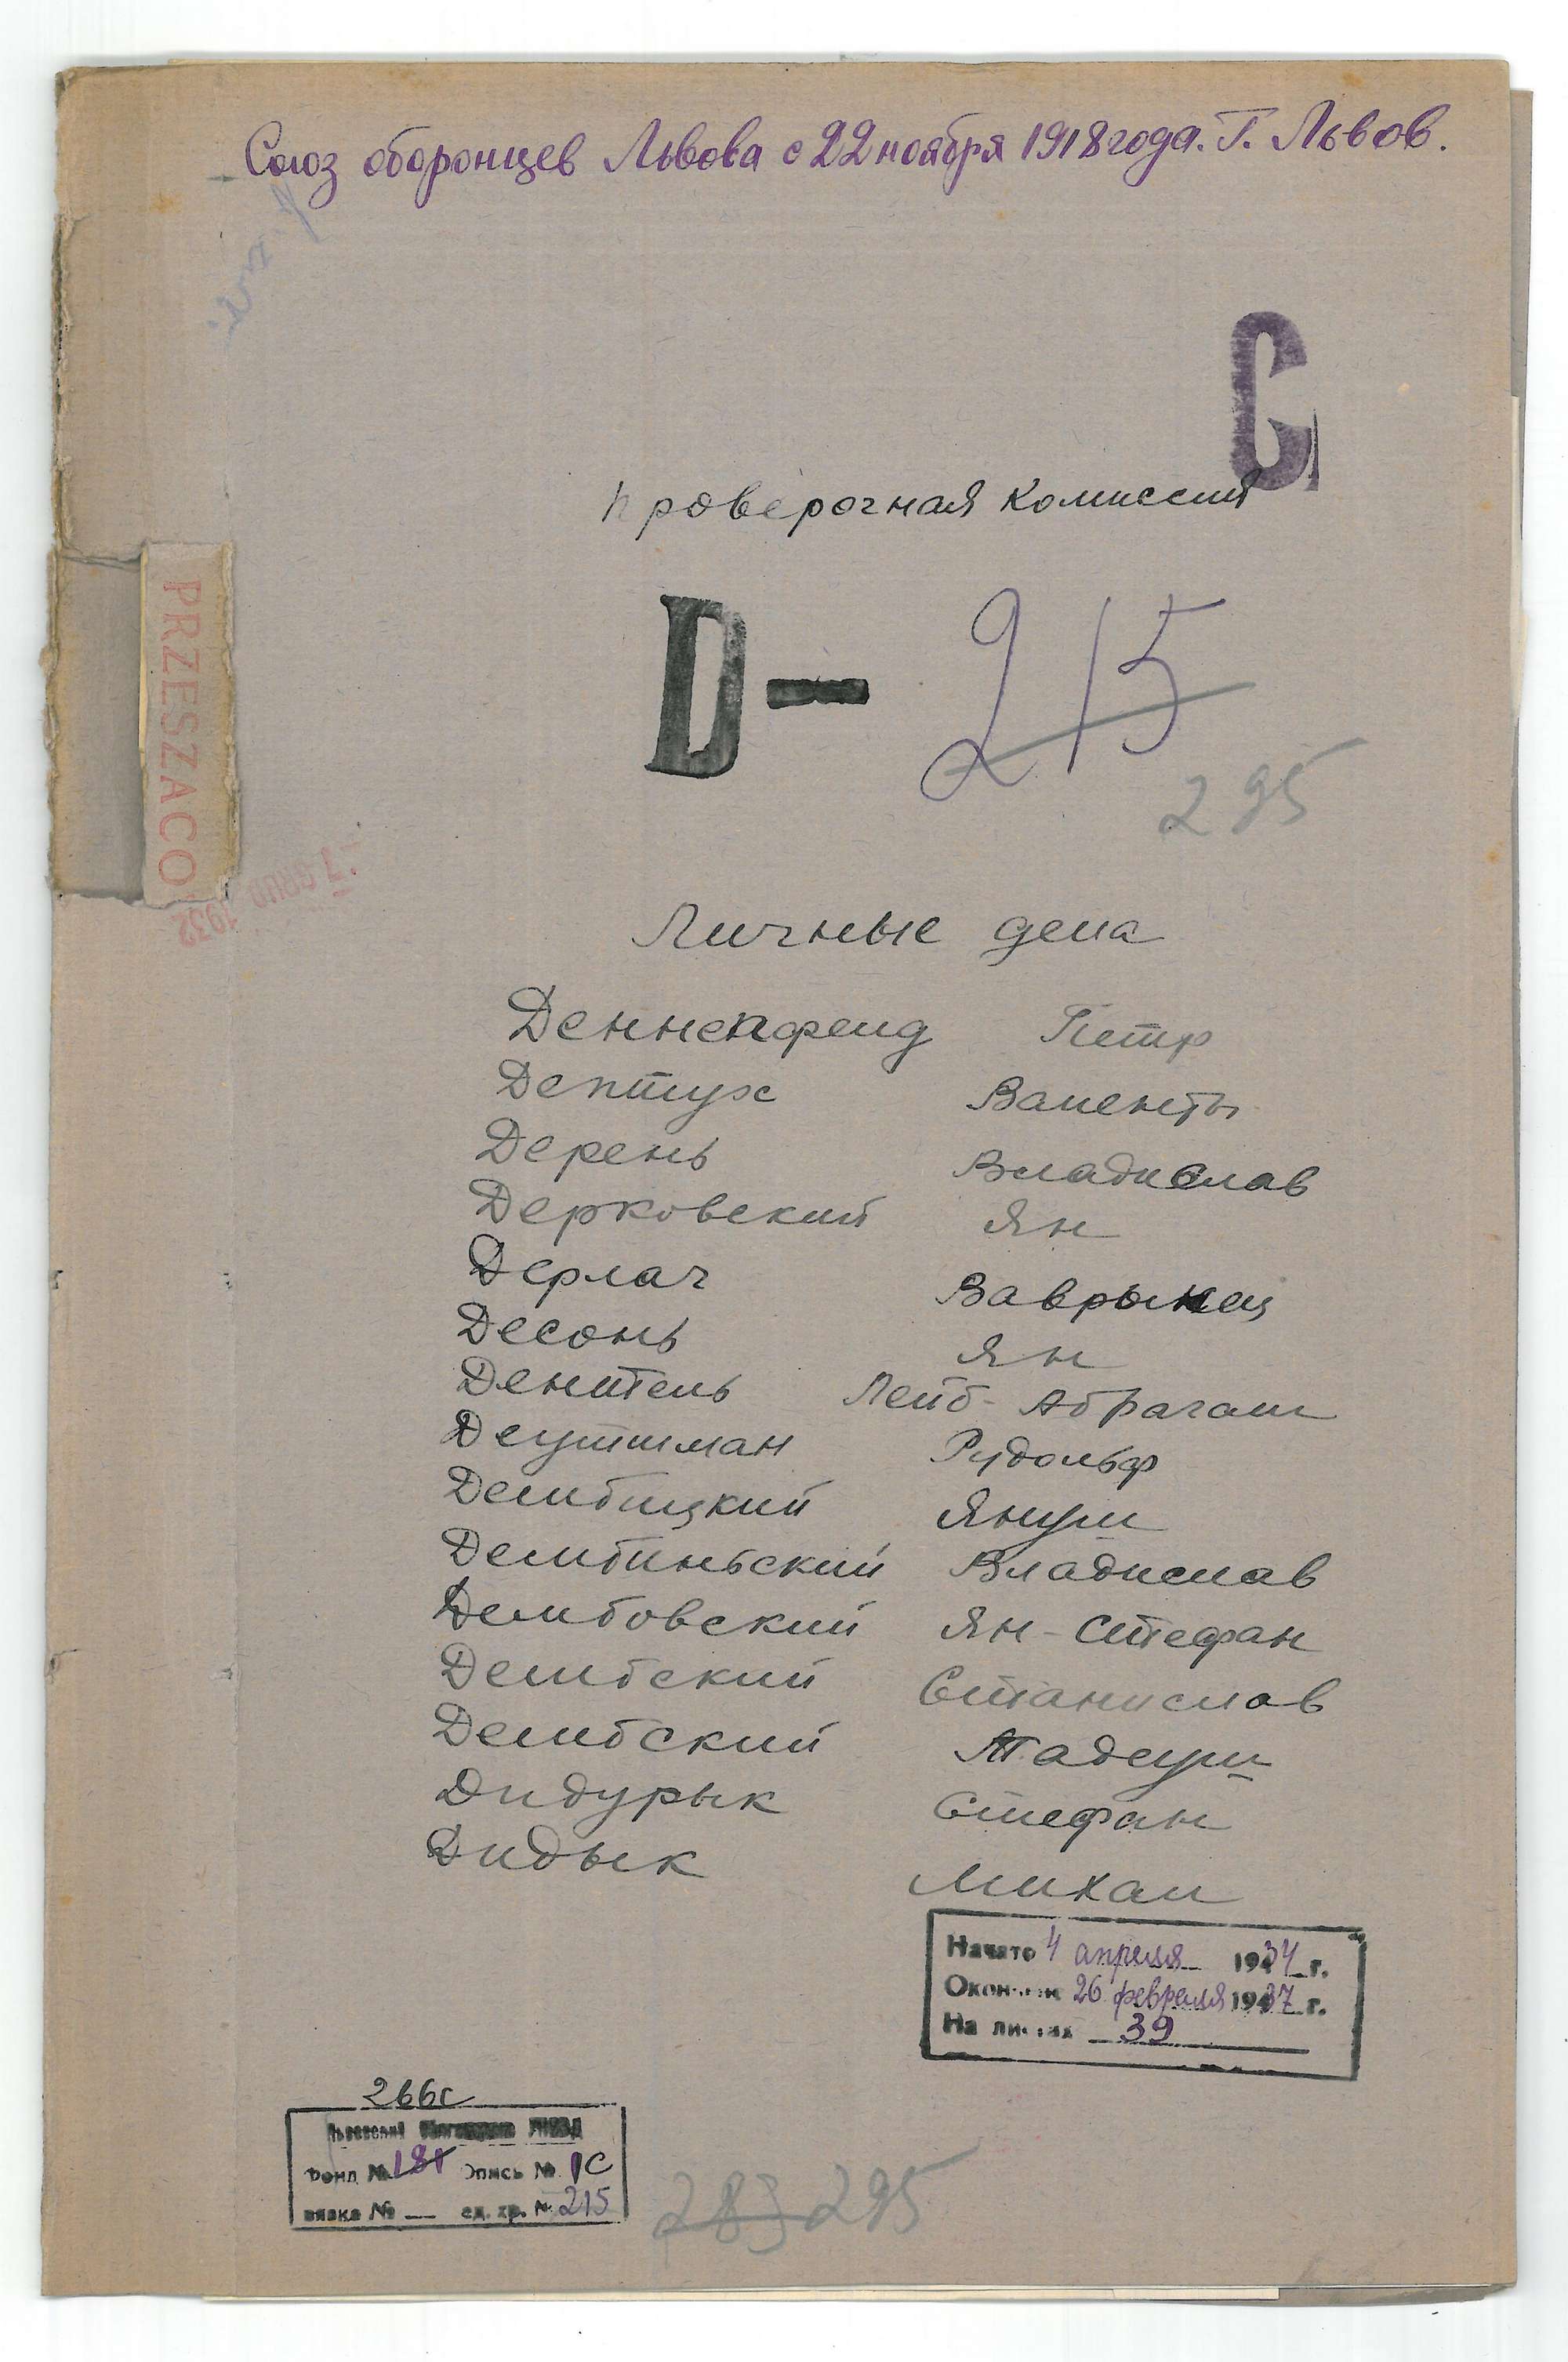 Союз оборонцев Львова с 22 ноября 1918 года. Г. Львов.
С
Проверочная комиссия
D — 215
295
PRZESZACO
1932
Личные дела
Денненфелд Петр
Дептух Валенты
Дерень Владислав
Дерковский Ян
Дерлач Ваврынец
Десонь Ян
Лейб-Абрагам
Деутшман Рудольф
Дембицкий Януш
Дембиньский Владислав
Дембовский Ян-Стефан
Дембский Станислав
Дембский Тадеуш
Дидурык Стефан
Дидык Михал
Начато 4 апреля 1934 г.
Окончен 26 февраля 1937 г.
На листах 39
266с
Фонд № 181 Опись № 1С
вязка № — ед. хр. № 215
283 295